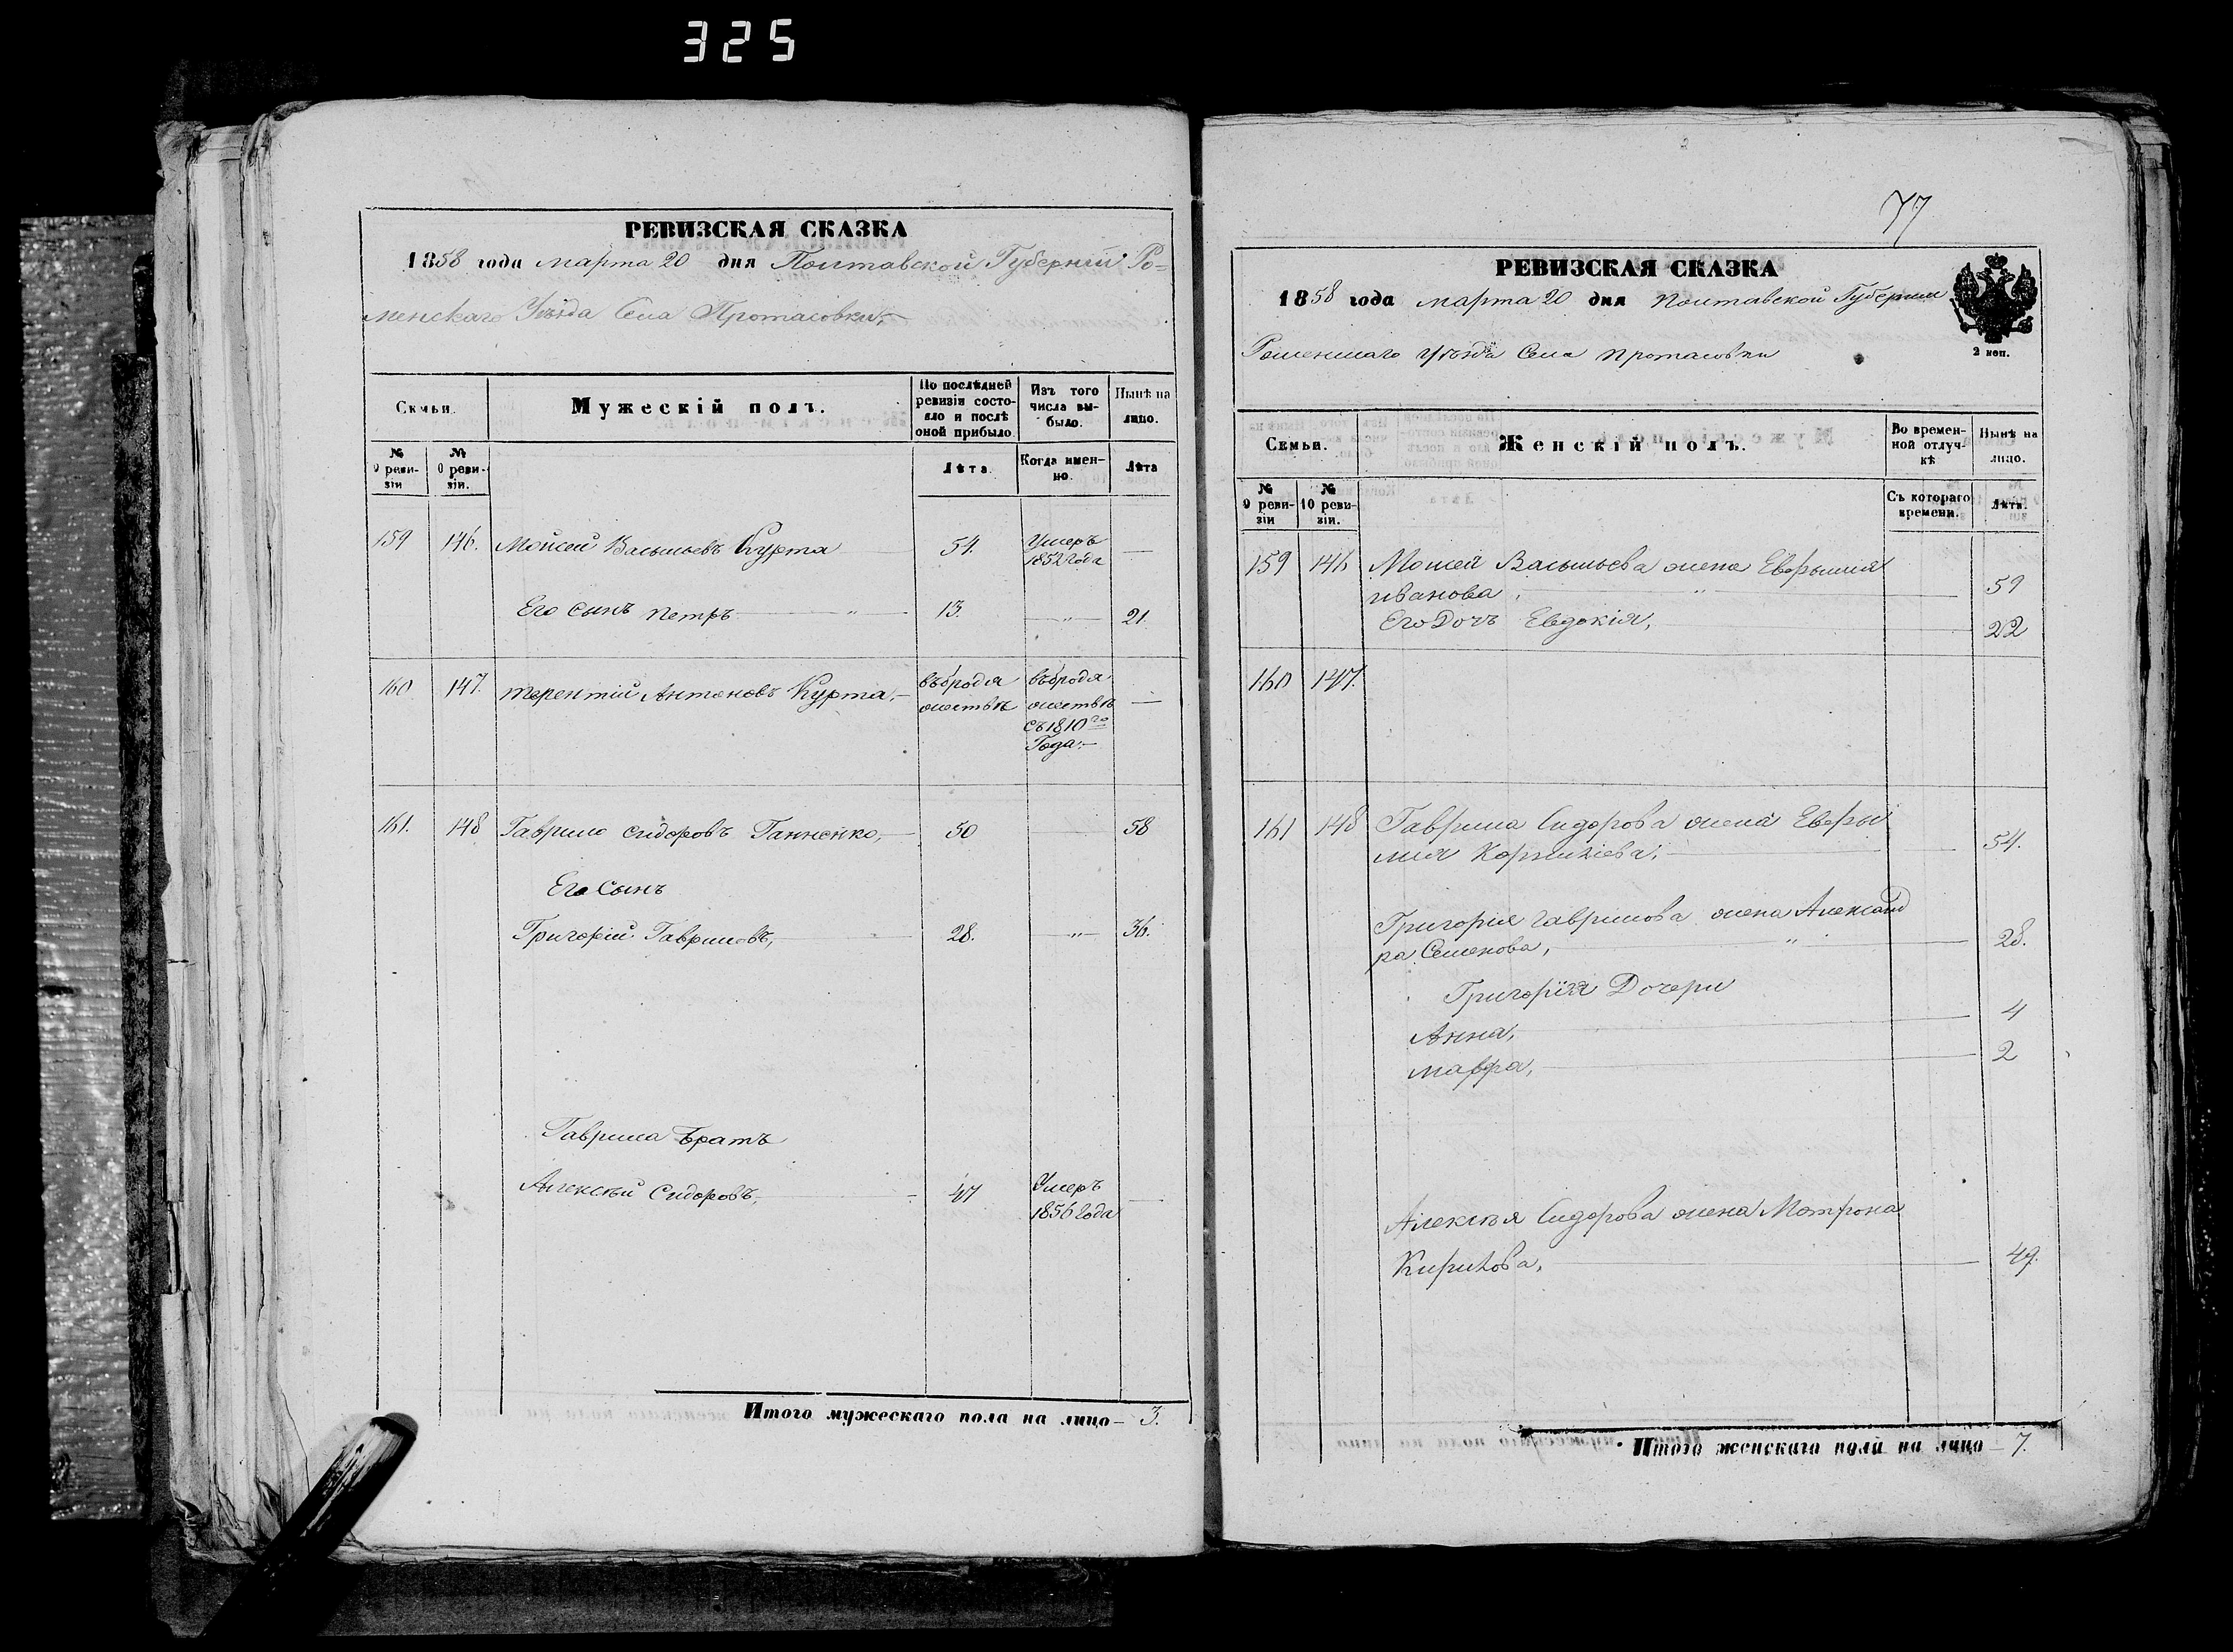 325
РЕВИЗСКАЯ СКАЗКА
1858 года марта 20 дня Полтавской Губерніи Ро=
менскаго Уѣзда Села Протасовки,
Семьи.
Мужескій полъ.
По послѣдней ревизіи состояло и послѣ оной прибыло.
Изъ того числа выбыло.
Нынѣ на лицо.
№ 9 ревизіи
№ 10 ревизіи.
Лѣта.
Когда именно.
Лѣта
159 146. Мойсей Васильевъ Курта 54. Умеръ 1852 года —
Его сынъ Петръ — „ — 13. — „ — 21.
160 147. Терентій Антоновъ Курта, въ бродяжествѣ въ бродяжествѣ съ 1810го Года —
161. 148 Гаврило Сидоровъ Ганненко, 50 58
Его Сынъ
Григорій Гавриловъ, 28. — „ — 36.
Гаврила Братъ
Алексѣй Сидоровъ, 47 Умеръ 1856 года —
Итого мужескаго пола на лицо — 3.
77
РЕВИЗСКАЯ СКАЗКА
1858 года марта 20 дня Полтавской Губерніи
Роменскаго Уѣзда Села Протасовки
2 коп.
Семьи.
Женскій полъ.
Во временной отлучкѣ
Нынѣ на лицо.
№ 9 ревизіи
№ 10 ревизіи.
Съ котораго времени.
Лѣта.
159 146 Мойсей Васильева жена Евфимія
Иванова, — „ — 59
Его Дочъ Евдокія, 22
160 147.
161 148 Гаврила Сидорова жена Евфи
мія 54.
Григорія Гаврилова жена Александ
ра Семенова, — „ — 28.
Григорія Дочери
Анна, 4
Мавра, 2
Алексѣя Сидорова жена Матрона
Кирилова, 49.
Итого женскаго пола на лицо — 7.